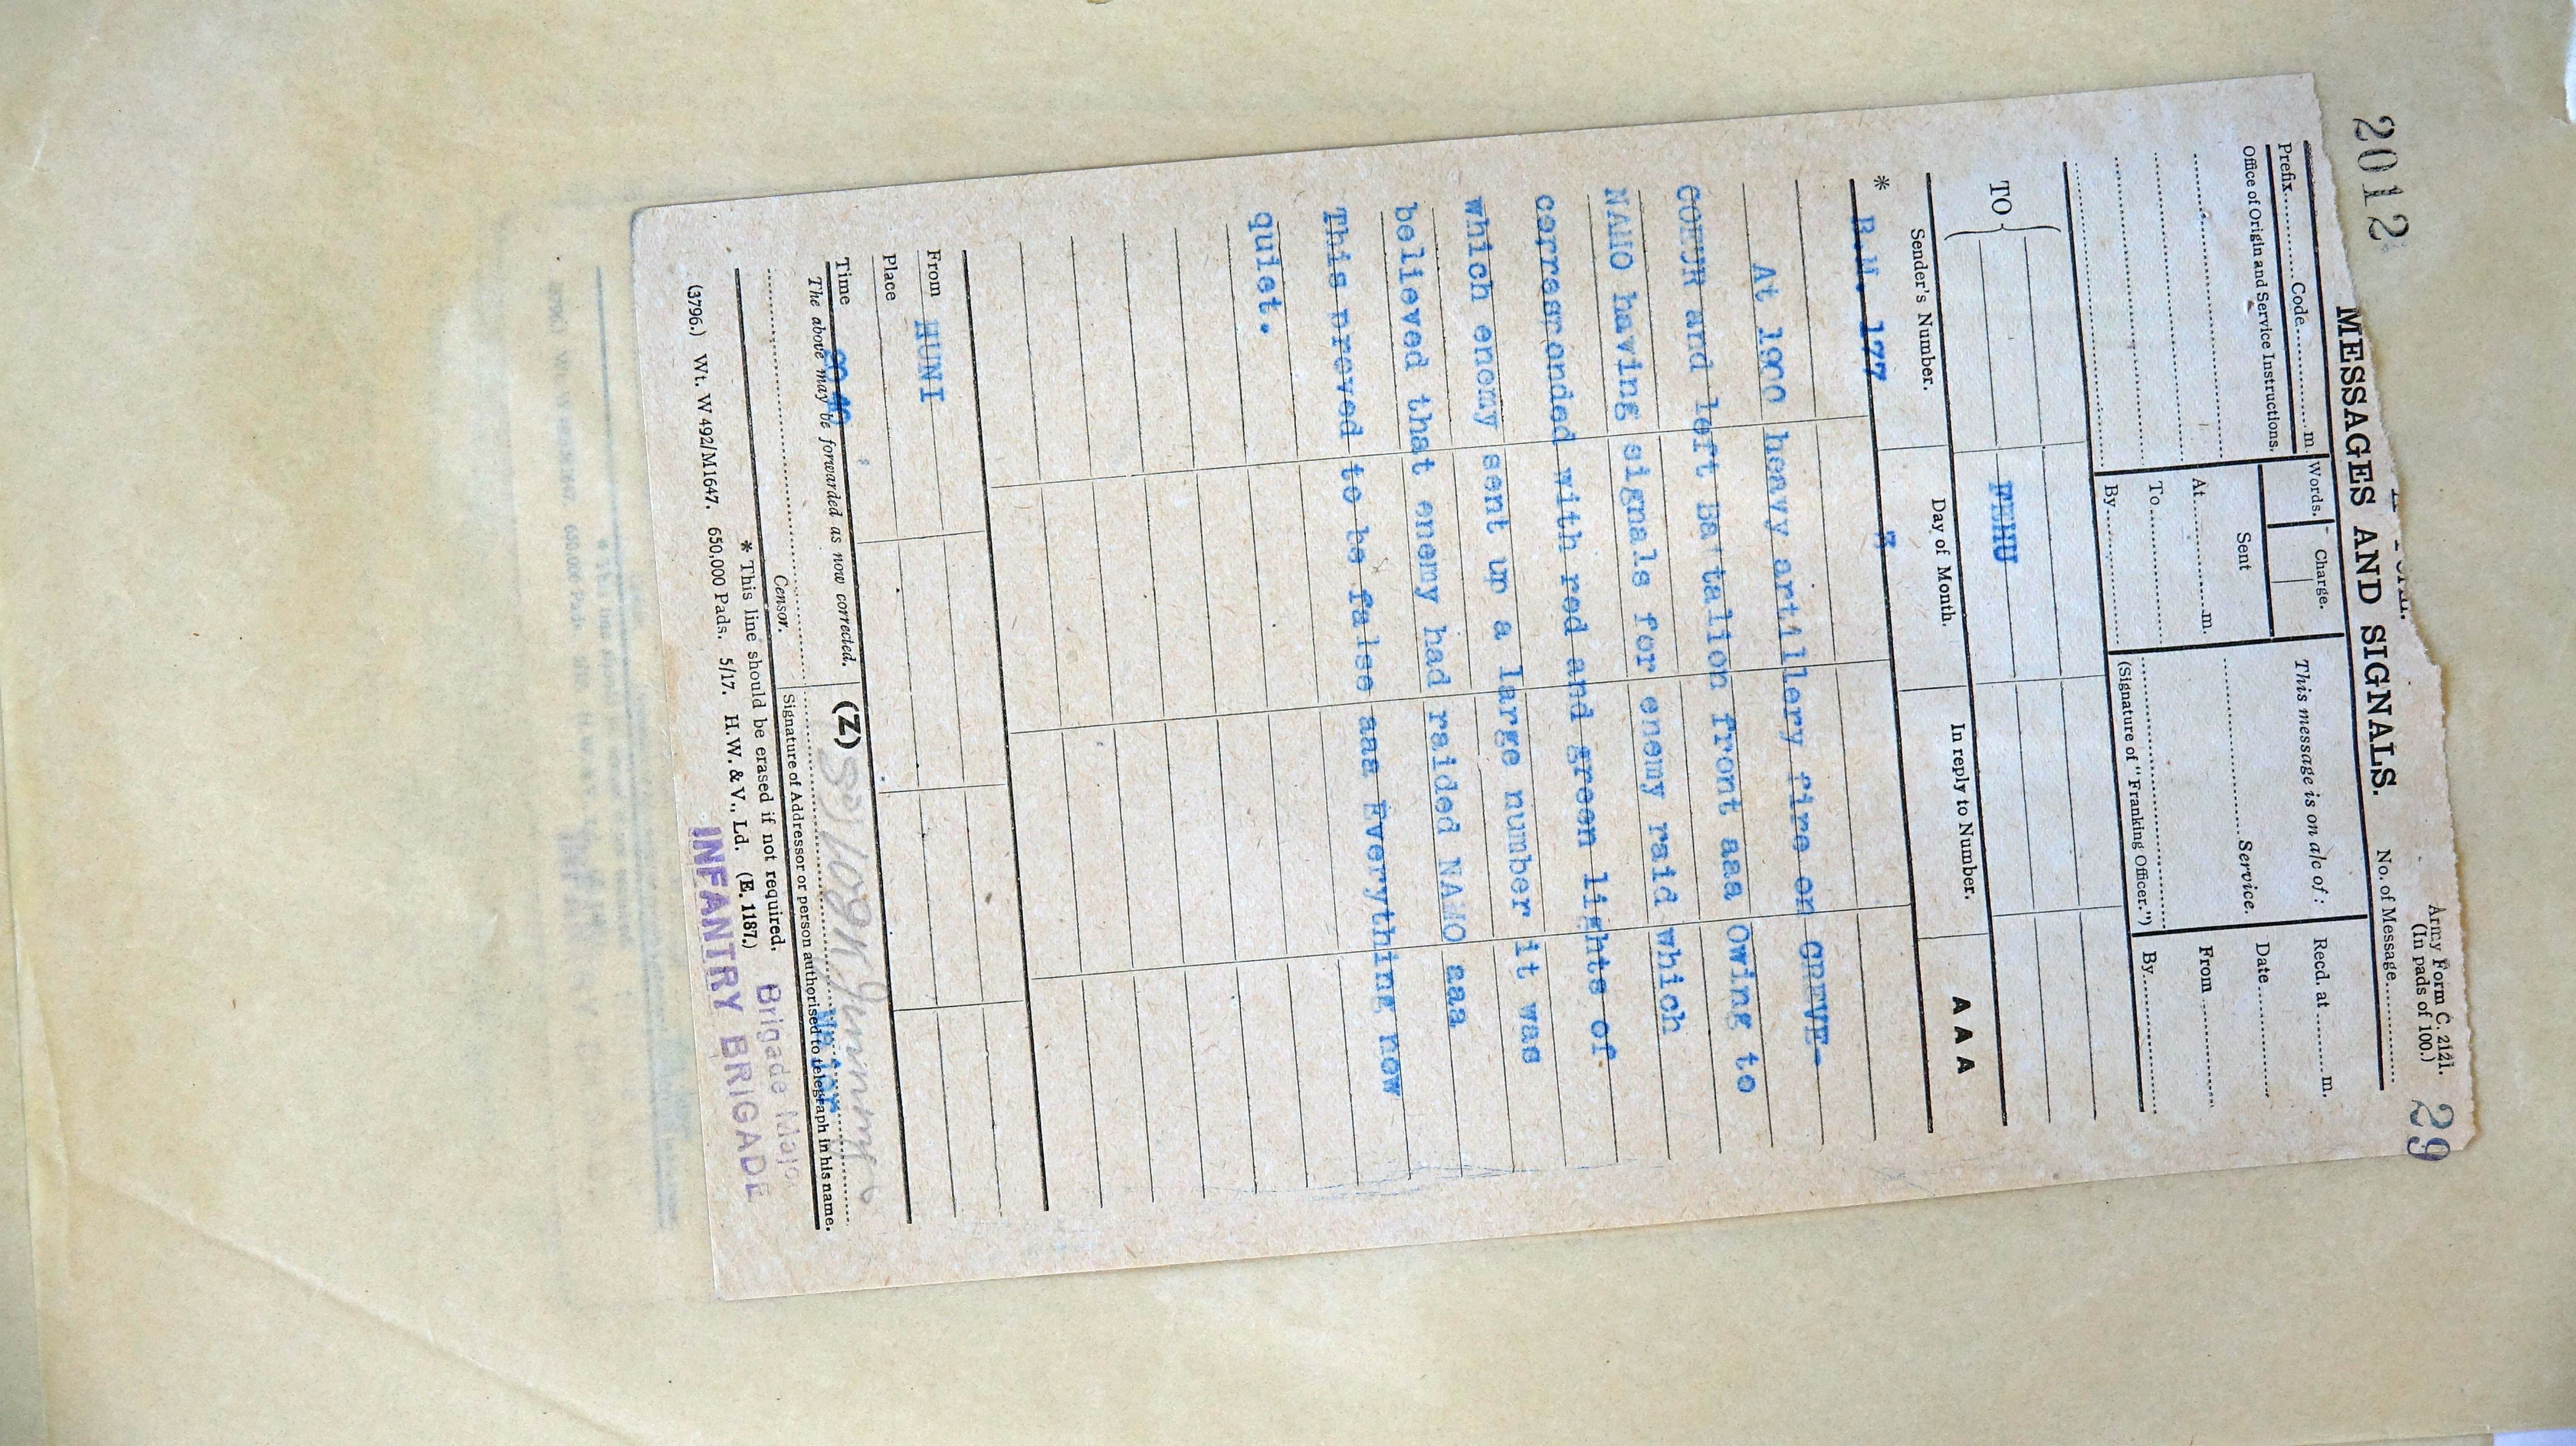 2012
29
MESSAGES AND SIGNALS.
Army Form C. 2121.
(In pads of 100.)
No. of Message
Prefix Code m.
Words. Charge.
This message is on a/c of :
Recd. at m.
Office of Origin and Service Instructions.
Sent
At m.
To
By
Service.
(Signature of "Franking Officer.")
Date
From
By
TO
FEHU
Sender's Number.
Day of Month.
In reply to Number.
AAA
* B.M. 177
3
At 1900 heavy artillery fire on GREVE-
COEUR and left Battalion front aaa Owing to
NAHO having signals for enemy raid which
corresponded with red and green lights of
which enemy sent up a large number it was
believed that enemy had raided NAHO aaa
This proved to be false aaa Everything now
quiet.
From HUNI
Place
Time
The above may be forwarded as now corrected.
(Z)
Censor.
Signature of Addressor or person authorised to telegraph in his name.
* This line should be erased if not required.
(3796.) Wt. W 492/M1647. 650,000 Pads. 5/17. H.W. & V., Ld. (E. 1187.)
Brigade Majo
INFANTRY BRIGADE